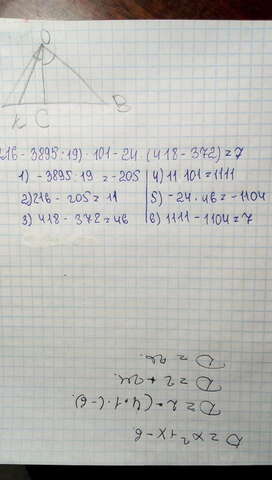 O
C B
216 - 3895:19) · 101 - 24 · (418 - 372) = 7
1) -3895:19 = -205 4) 11·101 = 1111
2) 216 - 205 = 11 5) -24 · 46 = -1104
3) 418 - 372 = 46 6) 1111 - 1104 = 7
D = x² + x - 6
D = 2 - (4·1·(-6).
D = 2 + 24.
D = 26.